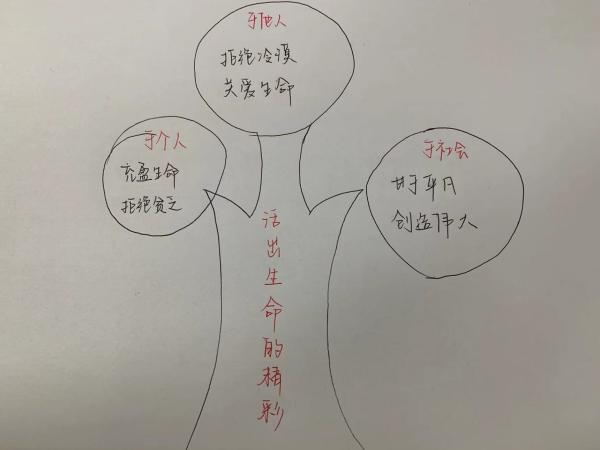 于他人
拒绝冷漠
关爱生命
于个人
充盈生命
拒绝贫乏
于社会
甘于平凡
创造伟大
活出生命的精彩